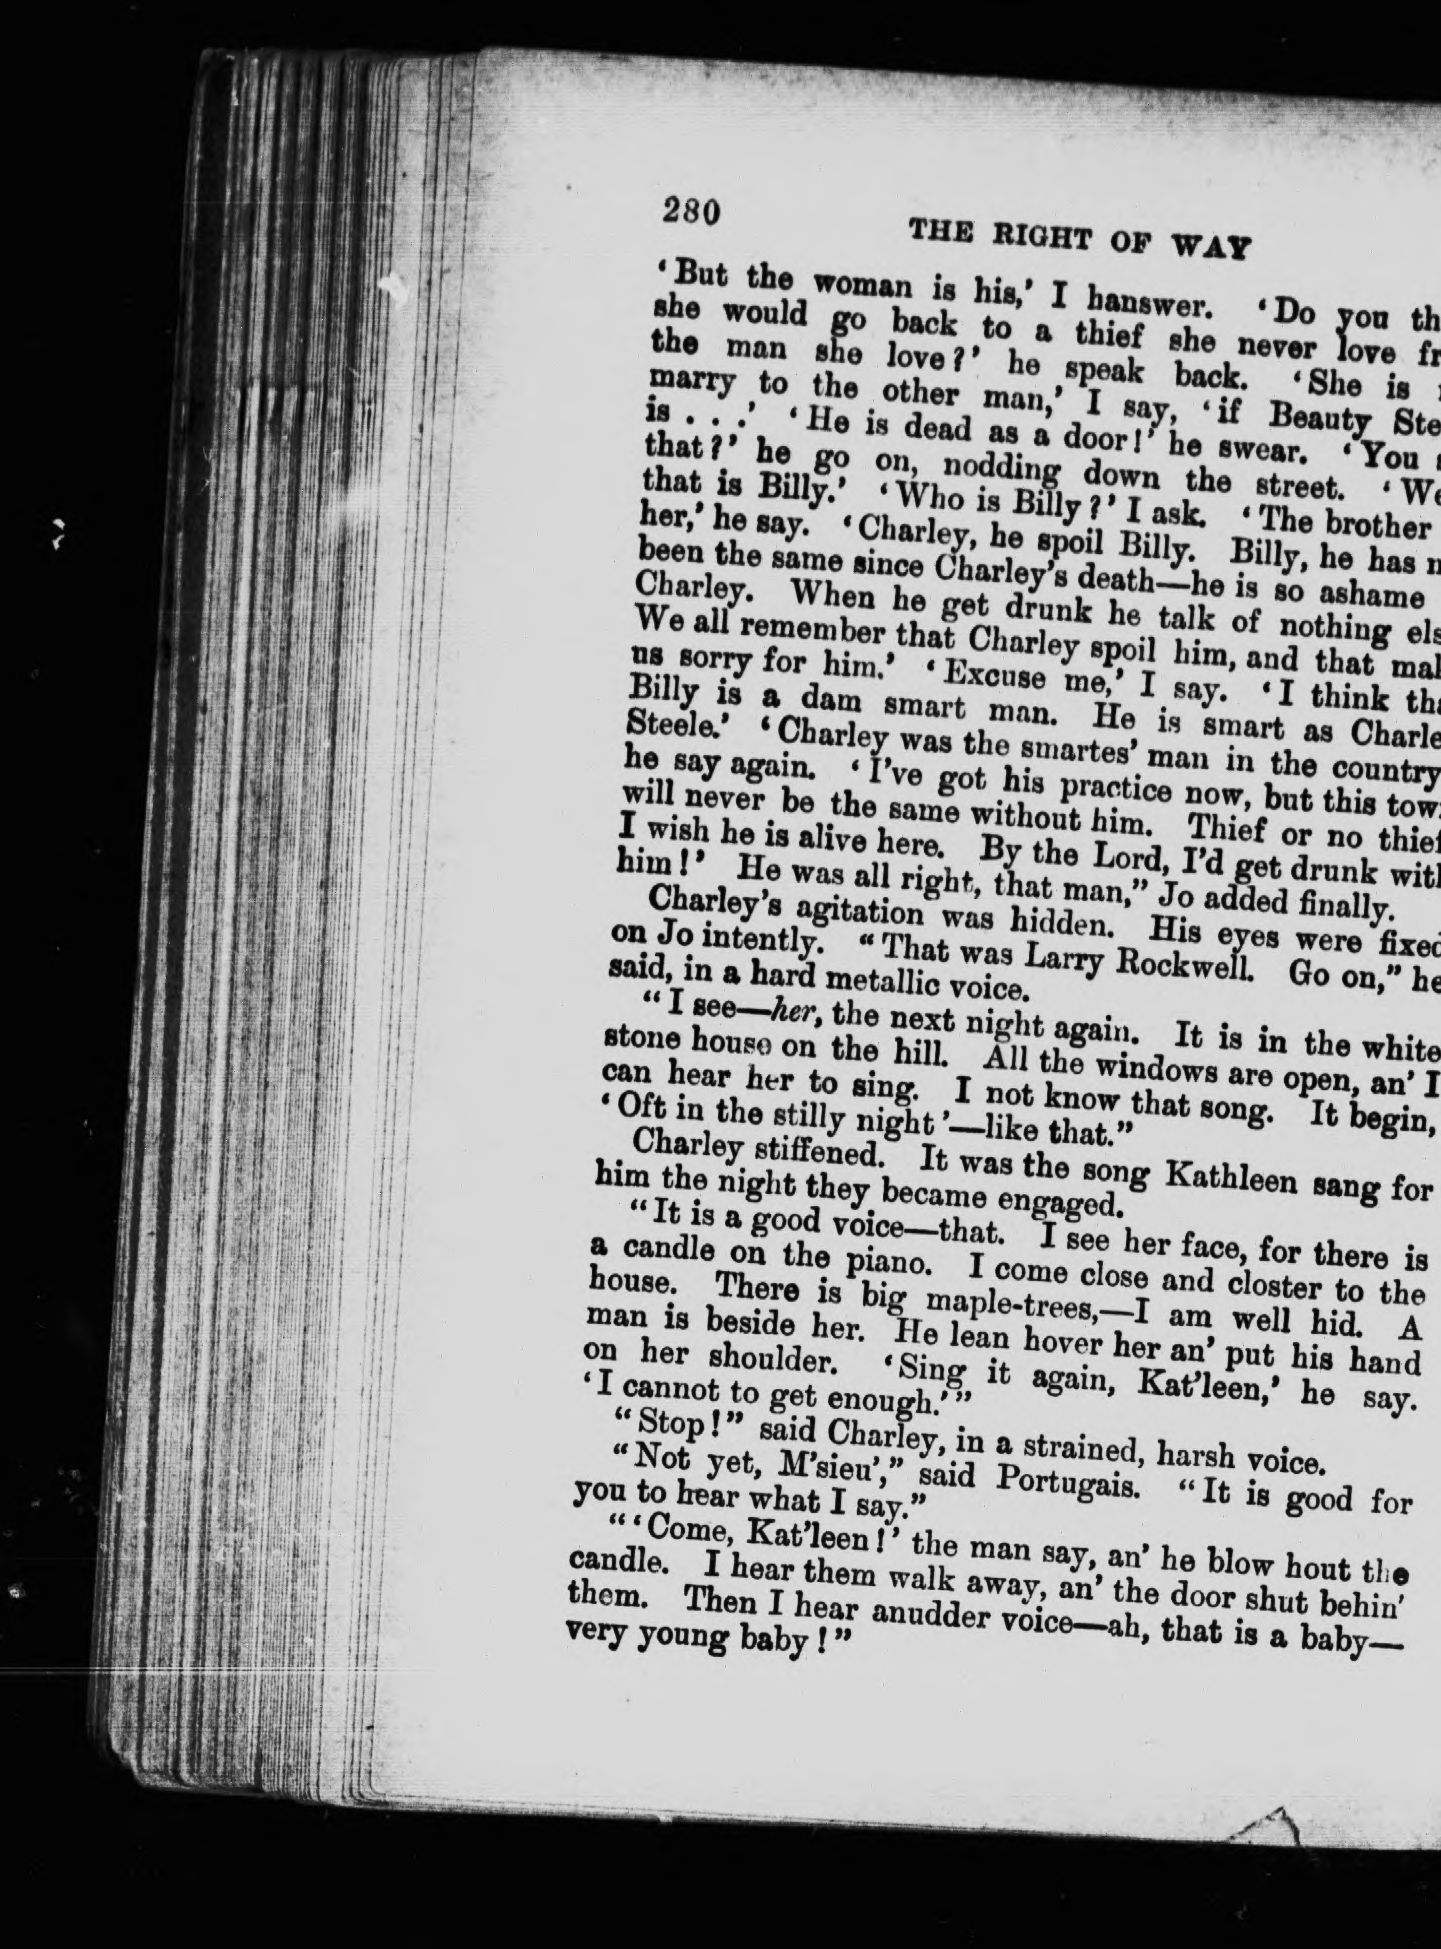 280
THE RIGHT OF WAY
‘But the woman is his,’ I hanswer. ‘Do you
she would go back to a thief she never love
the man she love?’ he speak back. ‘She is
marry to the other man,’ I say, ‘if Beauty
is . . .’ ‘He is dead as a door!’ he swear. ‘You
that?’ he go on, nodding down the street.
that is Billy.’ ‘Who is Billy?’ I ask. ‘The brother
her,’ he say. ‘Charley, he spoil Billy. Billy, he has
been the same since Charley’s death—he is so ashame
Charley. When he get drunk he talk of nothing
We all remember that Charley spoil him, and that
us sorry for him.’ ‘Excuse me,’ I say. ‘I think
Billy is a dam smart man. He is smart as
Steele.’ ‘Charley was the smartes’ man in the country
he say again. ‘I’ve got his practice now, but this
will never be the same without him. Thief or no
I wish he is alive here. By the Lord, I’d get drunk
him!’ He was all right, that man,” Jo added finally.
Charley’s agitation was hidden. His eyes were fixed
on Jo intently. “That was Larry Rockwell. Go on,” he
said, in a hard metallic voice.
“I see—her, the next night again. It is in the white
stone house on the hill. All the windows are open, an’ I
can hear her to sing. I not know that song. It begin,
‘Oft in the stilly night’—like that.”
Charley stiffened. It was the song Kathleen sang for
him the night they became engaged.
“It is a good voice—that. I see her face, for there is
a candle on the piano. I come close and closter to the
house. There is big maple-trees,—I am well hid. A
man is beside her. He lean hover her an’ put his hand
on her shoulder. ‘Sing it again, Kat’leen,’ he say.
‘I cannot to get enough.’”
“Stop!” said Charley, in a strained, harsh voice.
“Not yet, M’sieu’,” said Portugais. “It is good for
you to hear what I say.”
“‘Come, Kat’leen!’ the man say, an’ he blow hout the
candle. I hear them walk away, an’ the door shut behin’
them. Then I hear anudder voice—ah, that is a baby—
very young baby!”